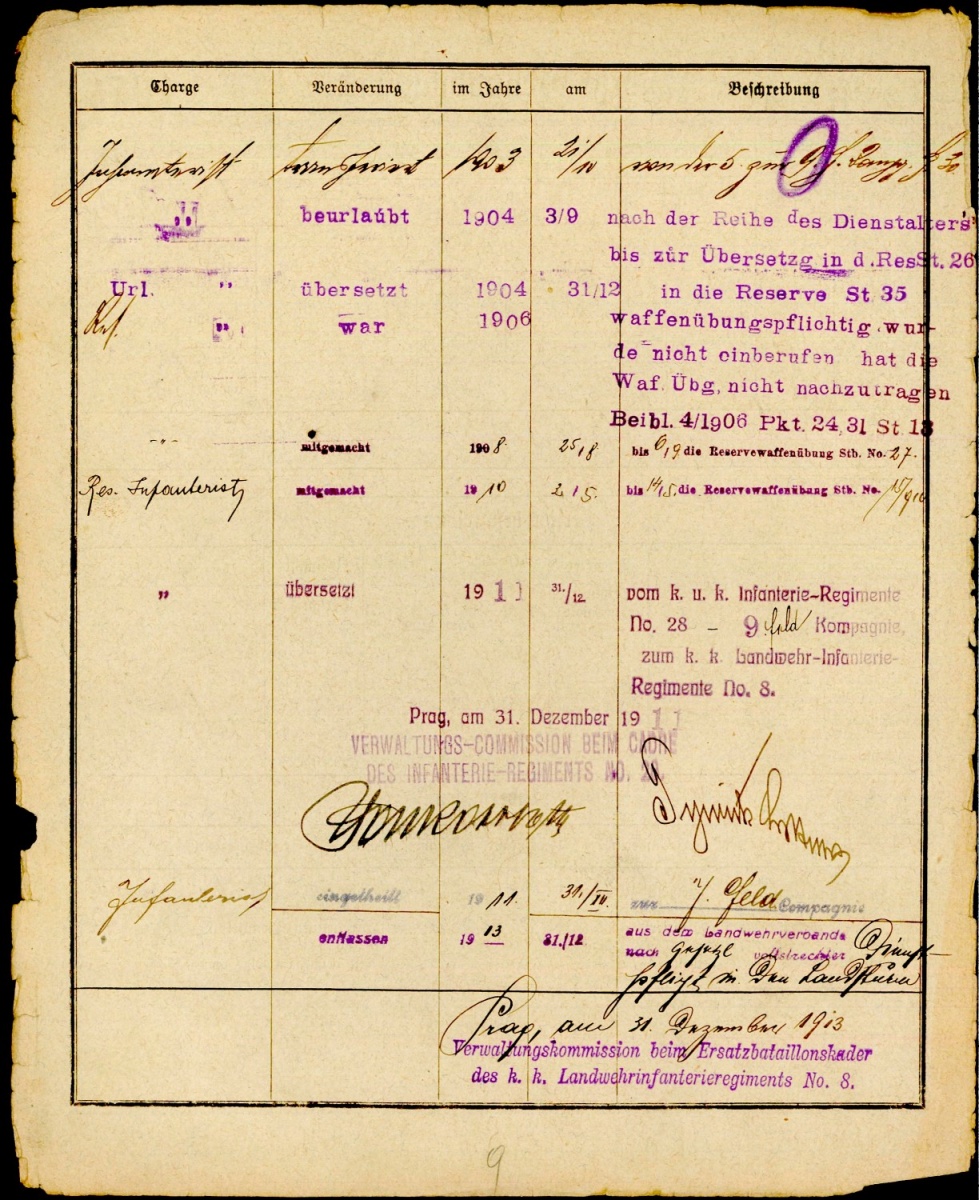 Charge Veränderung im Jahre am Beschreibung
Infanterist transferiert 1903 21/10 von der 5. zur 9. F.
beurlaubt 1904 3/9 nach der Reihe des Dienstalters
bis zur Übersetzg in d.ResSt. 26
Url. " übersetzt 1904 31/12 in die Reserve St 35
Res. " war 1906 waffenübungspflichtig, wur-
de nicht einberufen hat die
Waf. Übg, nicht nachzutragen
Beibl. 4/1906 Pkt. 24,31 St. 13
-"- mitgemacht 1908 25/8 bis 6/9 die Reservewaffenübung Stb. No. 27.
Res. Infanterist mitgemacht 1910 2/5. bis 14/5. die Reservewaffenübung Stb. No. 15/910
" übersetzt 1911 31./12. vom k. u. k. Infanterie-Regimente
No. 28 – 9 feld Kompagnie,
zum k. k. Landwehr-Infanterie-
Regimente No. 8.
Prag, am 31. Dezember 1911
VERWALTUNGS-COMMISSION BEIM CADRE
DES INFANTERIE-REGIMENTS NO. 28.
Infanterist eingetheilt 1911. 31./XII. zur 7. Feld Compagnie
entlassen 1913 31./12. aus dem Landwehrverbande
nach gesetzl vollstreckter Dienst-
pflicht in den Landsturm
Prag, am 31. Dezember 1913
Verwaltungskommission beim Ersatzbataillonskader
des k. k. Landwehrinfanterieregiments No. 8.
9